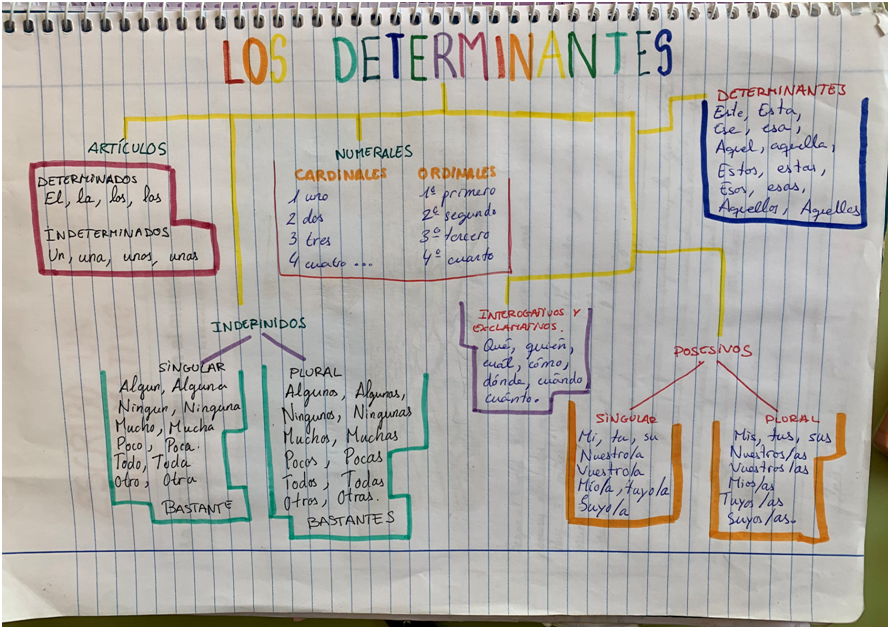 LOS DETERMINANTES
DETERMINANTES
Este, Esta,
Ese, esa,
Aquel, aquella,
Estos, estas,
Esos, esas,
Aquellos, Aquellas
ARTÍCULOS
DETERMINADOS
El, la, los, las
INDETERMINADOS
Un, una, unos, unas
NUMERALES
CARDINALES
1 uno
2 dos
3 tres
4 cuatro ...
ORDINALES
1º primero
2º segundo
3º tercero
4º cuarto
INDEFINIDOS
SINGULAR
Algun, Alguna
Ningun, Ninguna
Mucho, Mucha
Poco, Poca.
Todo, Toda
Otro, Otra
BASTANTE
PLURAL
Algunos, Algunas,
Ningunos, Ningunas
Muchos, Muchas
Pocos, Pocas
Todos, Todas
Otros, Otras.
BASTANTES
INTEROGATIVOS Y
EXCLAMATIVOS.
Qué, quién,
cuál, cómo,
dónde, cuándo
cuánto.
POSESIVOS
SINGULAR
Mi, tu, su
Nuestro/a
Vuestro/a
Mío/a, tuyo/a
Suyo/a
PLURAL
Mis, tus, sus
Nuestros/as
Vuestros/as
Mios/as
Tuyos/as
Suyos/as.